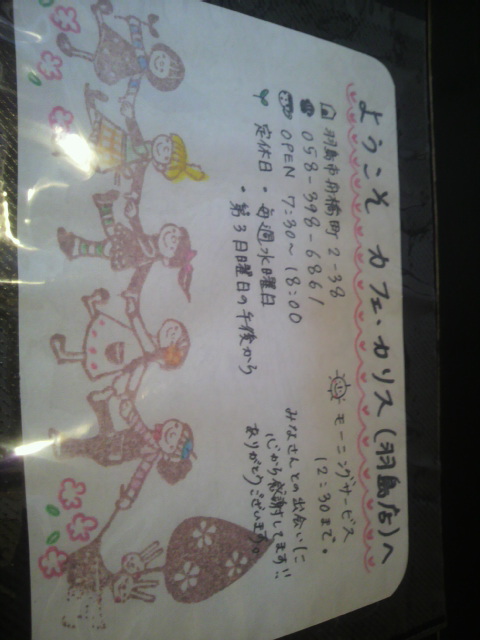 ようこそ カフェ・カリス(羽島店)へ
羽島市舟橋町 2-38
058-398-6861
OPEN 7:30～18:00
定休日・毎週水曜日
・第3日曜日の午後から
モーニングサービス
12:30まで。
みなさんとの出会いに
心から感謝してます!!
ありがとうございます。